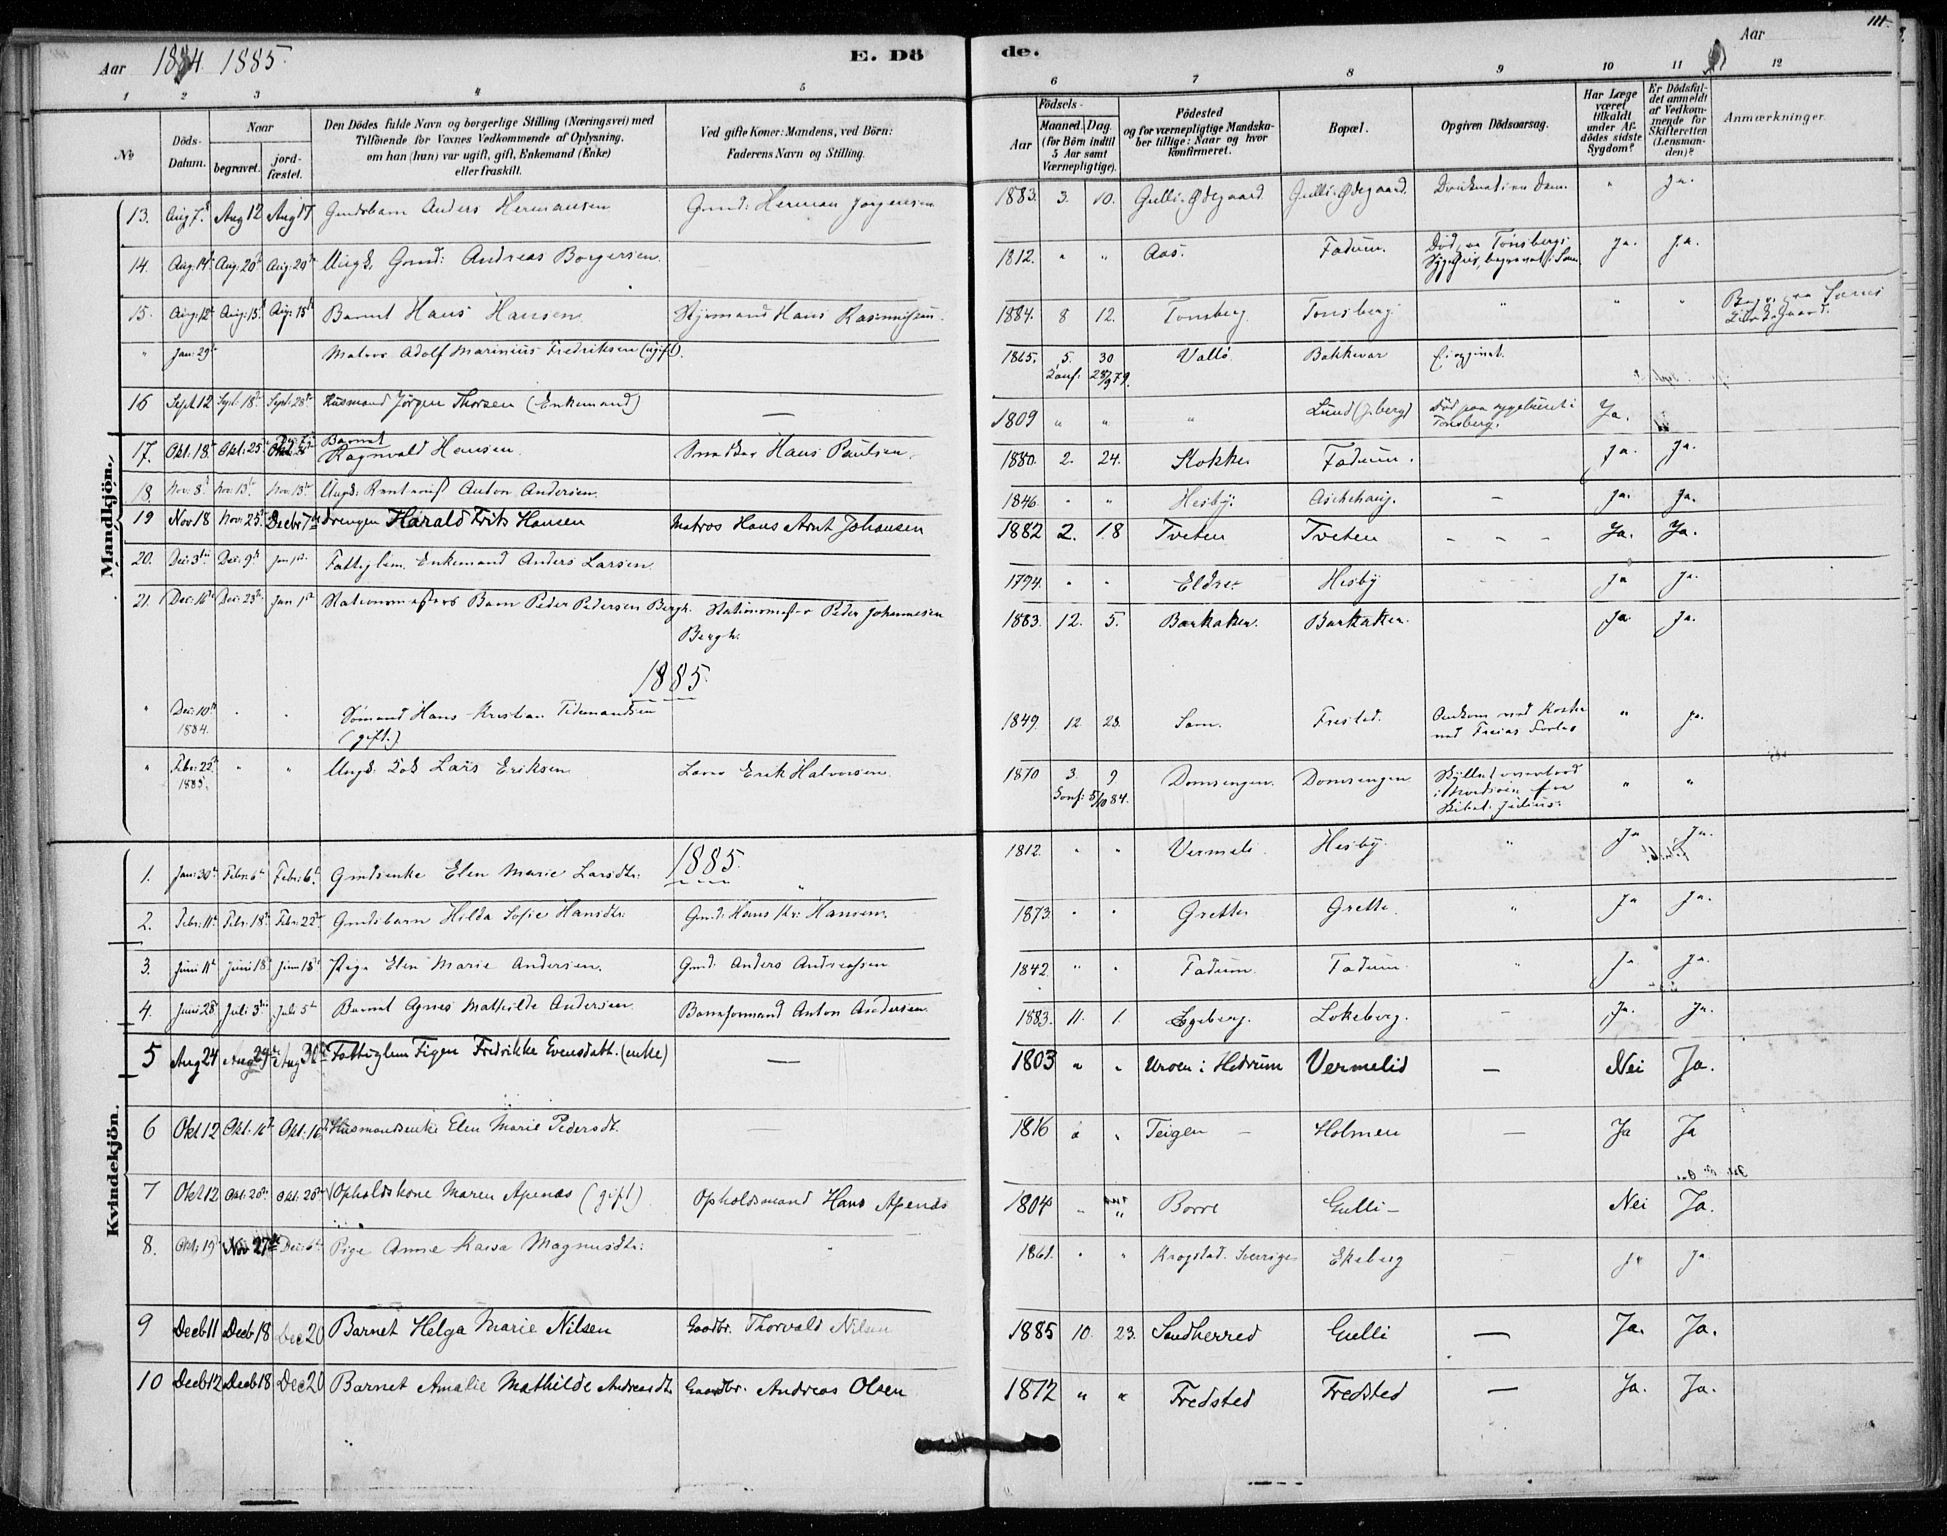 Aar 1884 1885.
E. Dö
de.
Aar
111.
1 2 3 4 5
6 7 8 9 10 11 12
No
Döds-Datum.
Naar
begravet.
jordfæstet.
Den Dödes fulde Navn og borgerlige Stilling (Næringsvei) med
Tilföiende for Voxnes Vedkommende af Oplysning,
om han (hun) var ugift, gift, Enkemand (Enke)
eller fraskilt.
Ved gifte Koner: Mandens, ved Börn:
Faderens Navn og Stilling.
Födsels-
Aar
Maaned. Dag.
(for Börn indtil 5 Aar samt Værnepligtige).
Födested
og for værnepligtige Mandska-
ber tillige: Naar og hvor
konfirmeret.
Bopæl.
Opgiven Dödsaarsag.
Har Læge været tilkaldt under Afdödes sidste Sygdom?
Er Dödsfaldet anmeldt af Vedkommende for Skifteretten (Lensmanden)?
Anmærkninger.
Mandkjön.
13. Aug 7. Aug 12 Aug 17 Gmdsbarn Anders Hermansen Gmd: Herman Jörgensen 1883. 3. 10. Gulli-Ødegaard Gulli-Ødegaard. Druknet i en Dam. " Ja.
14. Aug: 14 Aug: 20 Aug: 20 Ungk. Gmd: Andreas Borgersen. 1812. " " Aas. Fadum. Död paa Tönsbergs Sygehus, begravet i Sem Ja. Ja.
15. Aug: 12 Aug: 15 Aug: 15 Barnet Hans Hansen Styrmand Hans Rasmussen. 1884. 8 12. Tönsberg Tönsberg. " " "
" Jan: 29 Matros Adolf Marinius Fredriksen (ugift). 1865. 5. 30 Vallö. Bakkevar
Konf. 28/9 79.
16 Sept 12 Sept 18 Sept: 28 Husmand Jörgen Thorsen (Enkemand) — 1809 " " " Död paa sygehuset i Tönsberg. Ja.
17. Okt. 18 Okt: 25 Barnet Ragnvald Hansen. Snedker Hans Paulsen. 1880. 2. 24. Stokke Fadum. Ja. Ja.
18. Nov: 8 Nov: 13 Nov: 13 Ungk: Anton Andersen. 1846. " " Hesby. Askehaug. — Ja. Ja.
19 Nov 18 Nov: 25 Decbr 7 Drengen Harald Frits Hansen Matros Hans Arnt Johansen 1882 2. 18 Tveten Tveten - - - Ja. Ja.
20. Dec: 3 Dec: 9 Jan 1 Fattiglem. Enkemand Anders Larsen 1794. " " Hesby Ja Ja.
21. Dec: 16 Dec: 23 Jan 1 Stationsmesters Barn Peder Pedersen Bergh. Stationsmester Peder Johannesen Bergh. 1883. 12. 5. Barkaker. Barkaker. Ja Ja.
1885.
" Dec: 10 1884. " " Sömand Hans Kristian Tidemandsen (gift.) 1849. 12 28. Sem. Omkom ved Freias Forlis " Ja.
" Febr: 22 1885. " " Ungk. Kok Lars Eriksen Erik Halvorsen. 1870 3. 9 Domsengen. Domsengen Skyllet overbord i Nordsöen fra " "
Konf: 5/10 84.
Kvindekjön.
1885.
1. Jan: 30 Febr: 6 Febr: 6 Gmdsenke Elen Marie Larsdtr: " 1812. " " Vermeli. Hesby. " Ja Ja.
2. Febr: 11 Febr: 18 Febr: 22 Gmdsbarn Hilda Sofie Hansdtr: Gmd: Hans Kr: Hansen. 1873. " " Grette Grette. " Ja Ja.
3. Juni 11 Juni 18 Juni 18 Pige Elen Marie Andersen. Gmd: Anders Andreassen 1842. " " Fadum. Fadum. " Ja Ja.
4. Juni 28 Juli 3 Juli 5 Barnet Agnes Mathilde Andersen Baneformand Anton Andersen. 1883. 11. 1. Lokeberg. — Ja. Ja.
5 Aug 24 Aug 29 Aug 30 Fattiglem Pigen Fredrikke Evensdatt. (enke) — 1803 " " Uroen i Hedrum Vermelid — Nei Ja.
6 Okt 12 Okt. 16 Okt: 16 Husmandsenke Elen Marie Pedersdt. — 1816 " " Teigen — Holmen — Ja Ja
7 Okt 12 Okt. 20 Okt. 20 Opholdskone Maren Apenæs (gift) Opholdsmand Hans Apenæs 1804 " " Borre Gulli — Nei Ja.
8. Okt: 19 Nov 27 Dec: 6 Pige Anne Kaisa Magnusdtr: " 1861. " " Krogstad. Sverige Ekeberg — Ja Ja
9 Decb 11 Decb 18 Dec 20 Barnet Helga Marie Nilsen Gaardbr. Thorvald Nilsen 1885 10. 23. Sandherred Gulli — Ja. Ja.
10 Decb 12 Decb 18 Dec 20 Barnet Amalie Mathilde Andreasdt. Gaardbr. Andreas Olsen 1872 " " Fredsted Fredsted — Ja. Ja.